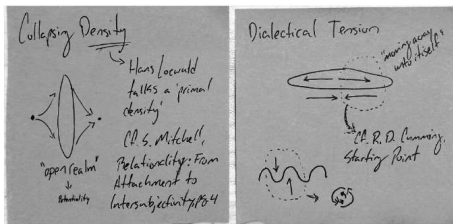 Collapsing Density
Hans Loewald
talks a 'primal
density'
Cf. S. Mitchell,
Relationality: From
Attachment to
Intersubjectivity, pg 4
"open realm"
Potentiality
Dialectical Tension
"moving away
unto itself"
Cf. R. D. Cumming,
Starting Point